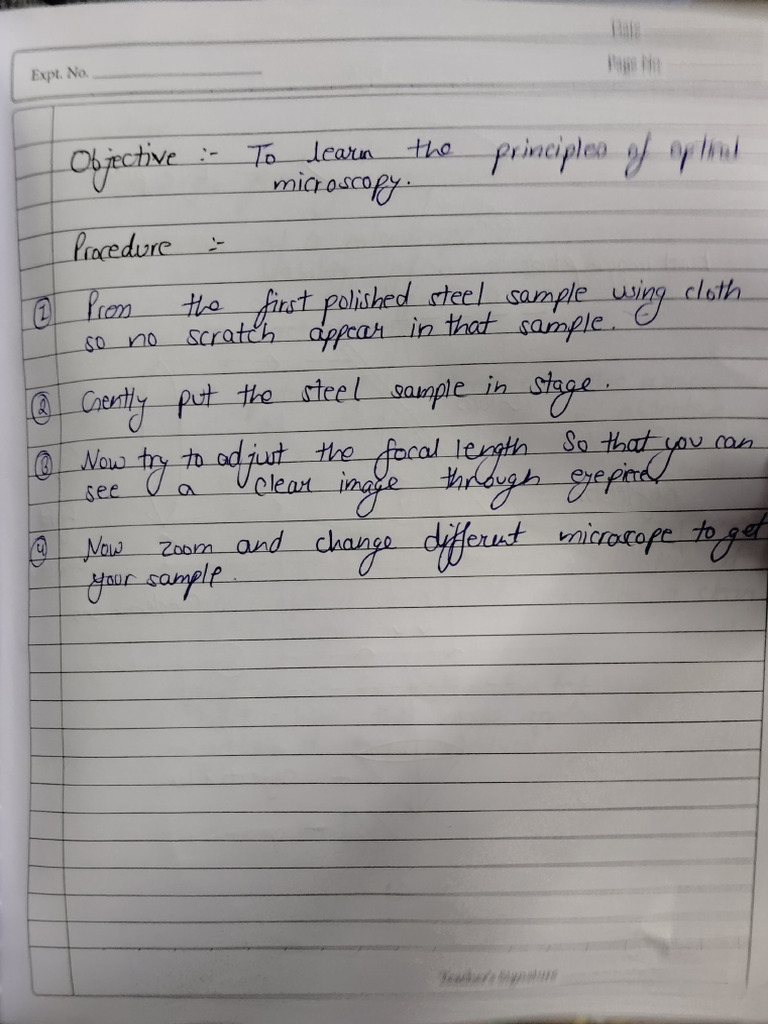 Date
Expt. No.
Page No
Objective :- To learn the principles of optical
microscopy.
Procedure :-
① the first polished steel sample using cloth
so no scratch appear in that sample.
② Gently put the steel sample in stage.
③ Now try to adjust the focal length so that you can
see a clear image through
④ Now zoom and change different microscope to get
your sample.
Teacher's Signature